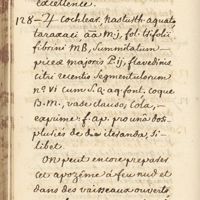 excellence.
128 - ℞ Cochlear. nasturt. aquat.
taraxaci āā M.j, fol. trifolii
fibrini MB, summitatum
piceæ majoris P.ij, flavedinis
citri recentis segmentulorum
n.° vi cum S.Q. aq. font. coque
B.M., vase clauso, Cola,
exprime f. ap. pro una dos-
plusies de die iteranda, si
libet.
On peut encore preparer
cet apozéme à feu nud et
dans des vaisseaux ouverts